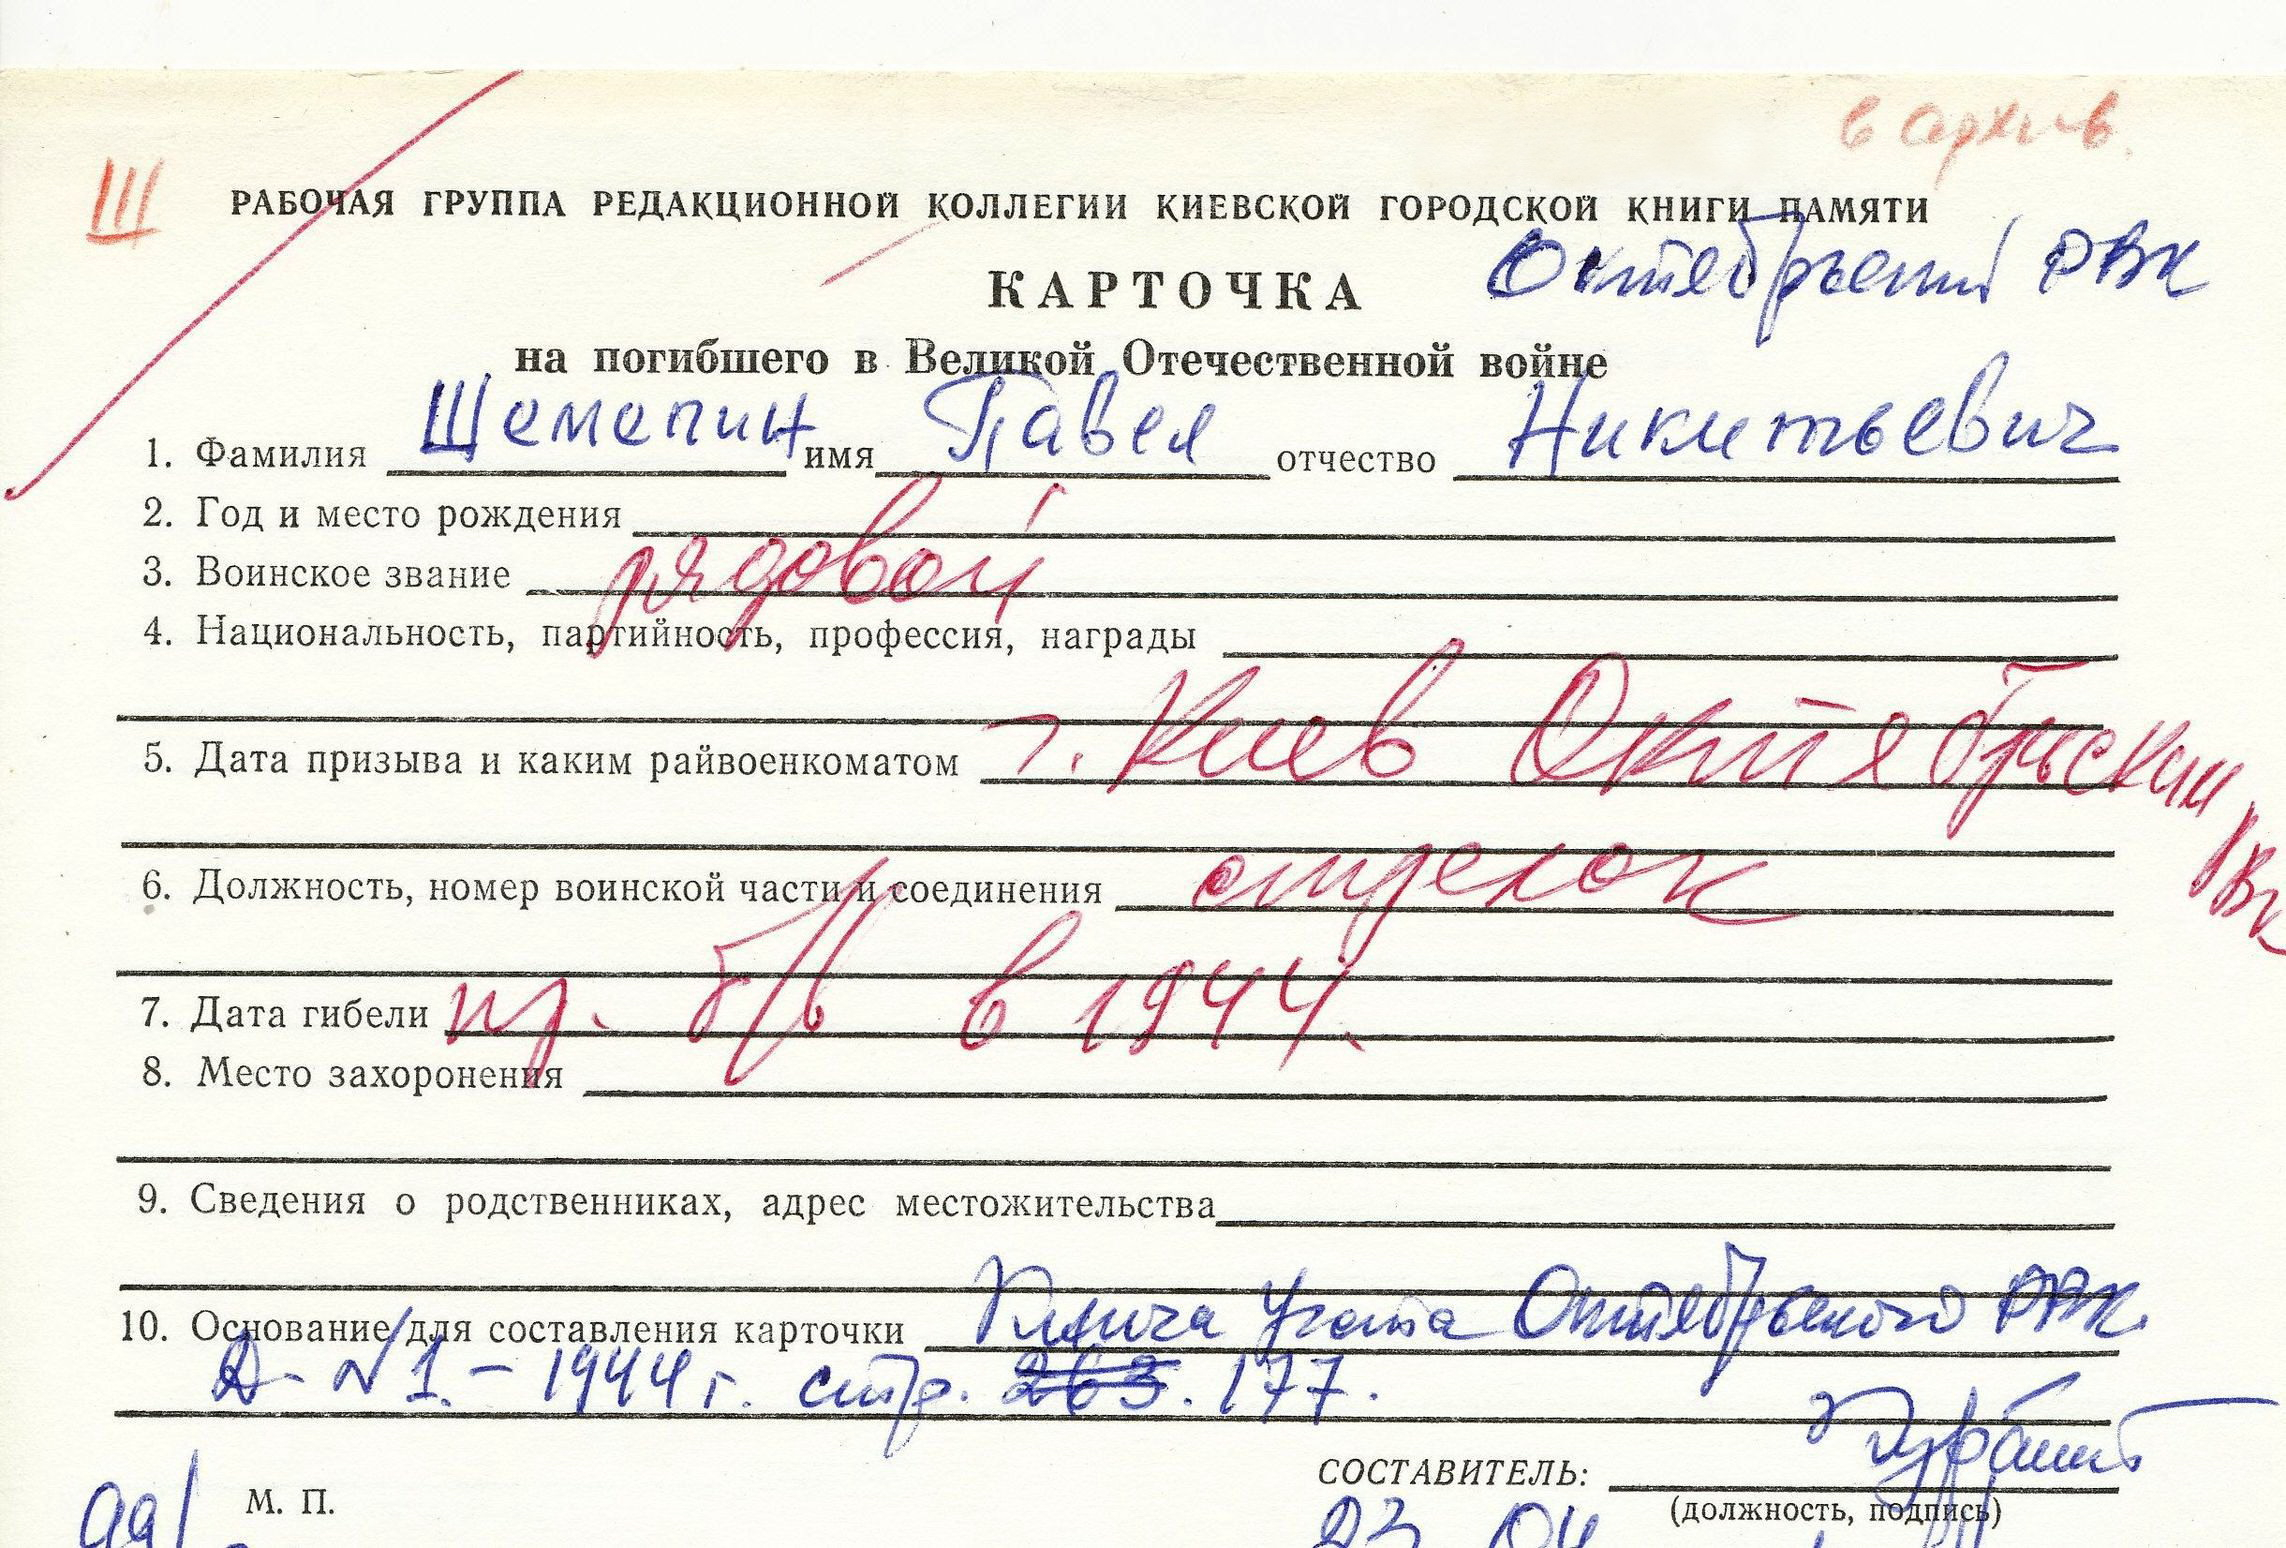 в архив.
Ш РАБОЧАЯ ГРУППА РЕДАКЦИОННОЙ КОЛЛЕГИИ КИЕВСКОЙ ГОРОДСКОЙ КНИГИ ПАМЯТИ
КАРТОЧКА Октябрьский РВК
на погибшего в Великой Отечественной войне
1. Фамилия Щемепин имя Павел отчество Никитьевич
2. Год и место рождения
3. Воинское звание рядовой
4. Национальность, партийность, профессия, награды
5. Дата призыва и каким райвоенкоматом г. Киев Октябрьским РВК
6. Должность, номер воинской части и соединения стрелок
7. Дата гибели пр. б/в в 1944.
8. Место захоронения
9. Сведения о родственниках, адрес местожительства
10. Основание для составления карточки Книга учета Октябрьского РВК.
Д- №1.- 1944 г. стр. 263. 177.
СОСТАВИТЕЛЬ:
М. П. (должность, подпись)
23 04